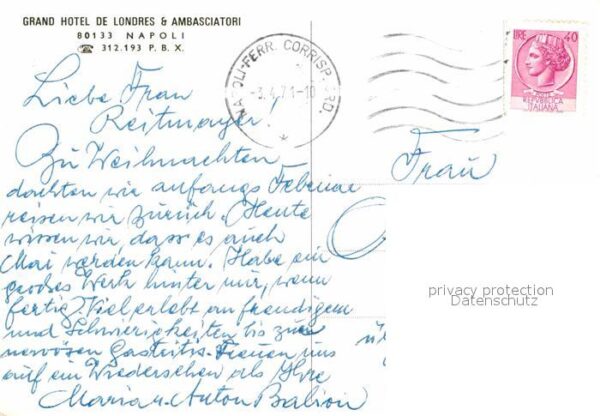 GRAND HOTEL DE LONDRES & AMBASCIATORI
80133 NAPOLI
☎ 312.193 P. B. X.
NAPOLI-FERR. CORRISP. ORD.
-3.4.71-10
LIRE 40
REPVBBLICA
ITALIANA
Liebe Frau
Reitmayer,
Zu Weihnachten
dachten wir anfangs Februar
reisen wir zurück. Heute
wissen wir dass es auch
Mai werden kann. Habe ein
großes Werk hinter mir, wenn
fertig? Viel erlebt an freudigem
und Schwierigkeiten bis zur
nervösen Gastritis. Freuen uns
auf ein Wiedersehen als Ihre
Maria u. Anton
Frau
privacy protection
Datenschutz
ü